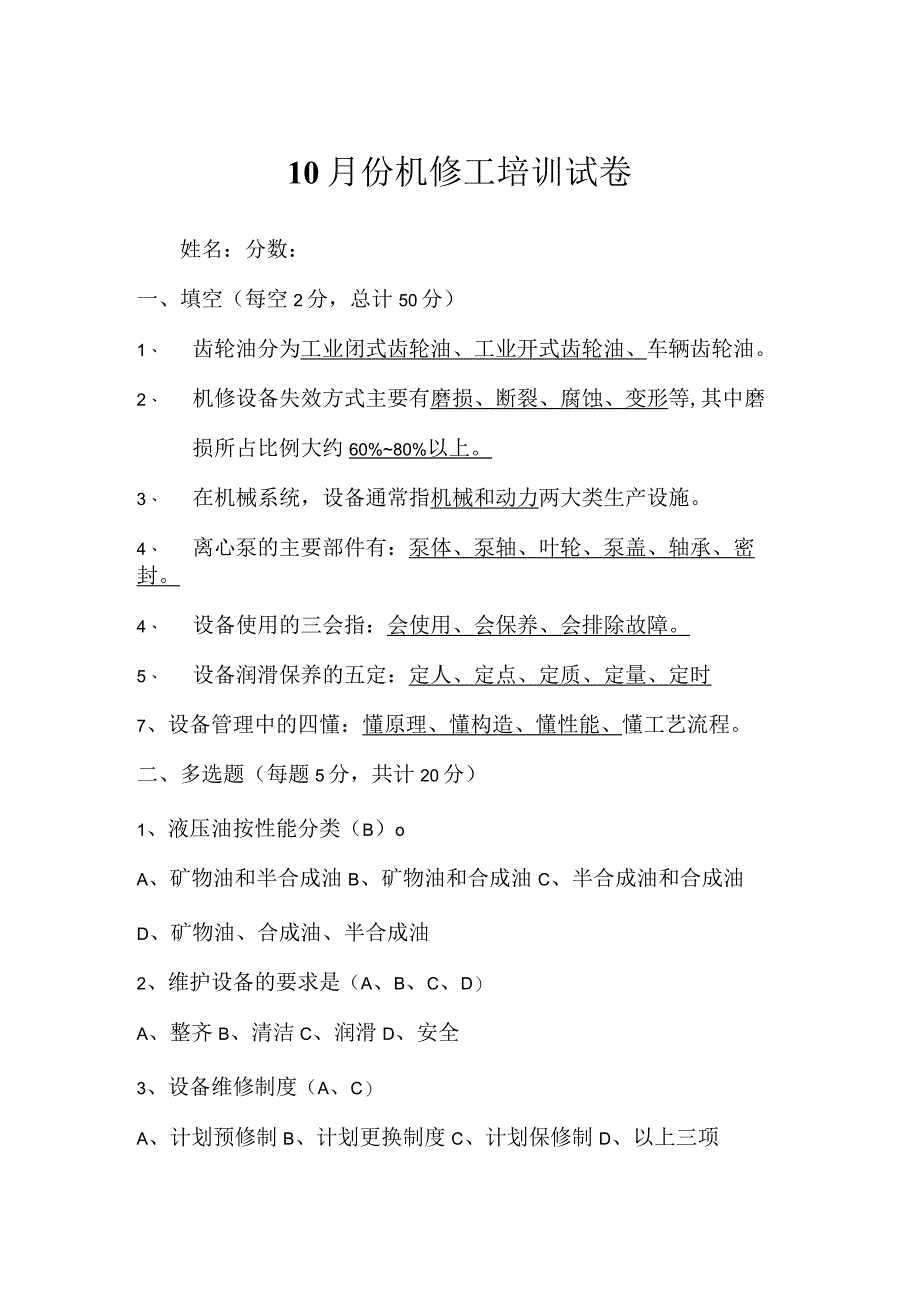 10月份机修工培训试卷
姓名：分数：
一、填空（每空2分，总计50分）
1、 齿轮油分为工业闭式齿轮油、工业开式齿轮油、车辆齿轮油。
2、 机修设备失效方式主要有磨损、断裂、腐蚀、变形等,其中磨
损所占比例大约60%~80%以上。
3、 在机械系统，设备通常指机械和动力两大类生产设施。
4、 离心泵的主要部件有：泵体、泵轴、叶轮、泵盖、轴承、密
封。
4、 设备使用的三会指：会使用、会保养、会排除故障。
5、 设备润滑保养的五定：定人、定点、定质、定量、定时
7、设备管理中的四懂：懂原理、懂构造、懂性能、懂工艺流程。
二、多选题（每题5分，共计20分）
1、液压油按性能分类（B）o
A、矿物油和半合成油B、矿物油和合成油C、半合成油和合成油
D、矿物油、合成油、半合成油
2、维护设备的要求是（A、B、C、D）
A、整齐B、清洁C、润滑D、安全
3、设备维修制度（A、C）
A、计划预修制B、计划更换制度C、计划保修制D、以上三项